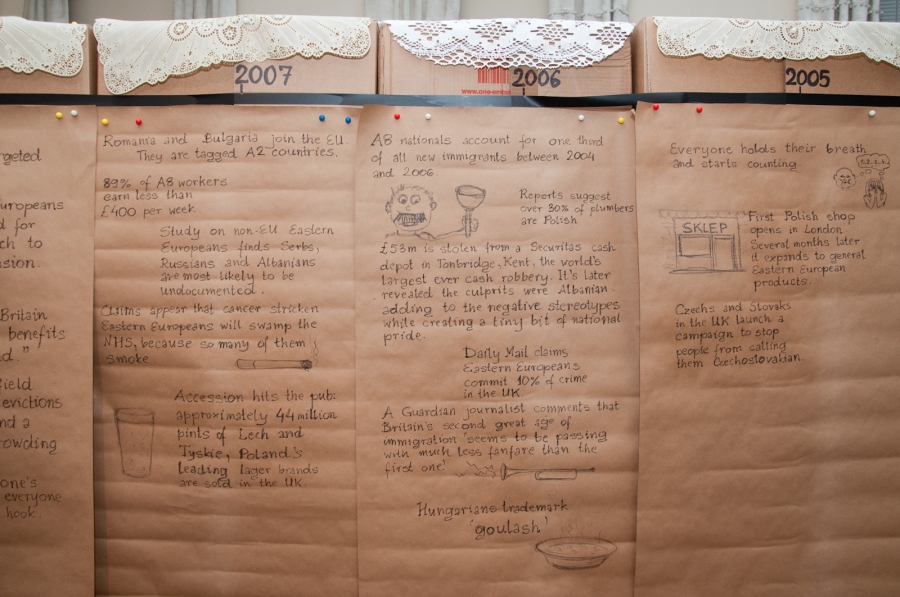 2007
2006
2005
www.one-
rgeted
uropeans
d for
ch to
sion.
Britain
benefits
d."
ield
evictions
nd a
rowding
one's
everyone
hook.
Romania and Bulgaria join the EU.
They are tagged A2 countries.
89% of A8 workers
earn less than
£400 per week
Study on non-EU Eastern
Europeans finds Serbs,
Russians and Albanians
are most likely to be
undocumented.
Claims appear that cancer stricken
Eastern Europeans will swamp the
NHS, because so many of them
smoke
Accession hits the pub:
approximately 44 million
pints of Lech and
Tyskie, Poland's
leading lager brands
are sold in the UK.
A8 nationals account for one third
of all new immigrants between 2004
and 2006.
Reports suggest
over 30% of plumbers
are Polish
£53m is stolen from a Securitas cash
depot in Tonbridge, Kent, the world's
largest ever cash robbery. It's later
revealed the culprits were Albanian.
adding to the negative stereotypes
while creating a tiny bit of national
pride.
Daily Mail claims
Eastern Europeans
commit 10% of crime
in the UK
A Guardian journalist comments that
Britain's second great age of
immigration 'seems to be passing
with much less fanfare than the
first one!
Hungarians trademark
'goulash'
Everyone holds their breath
and starts counting.
SKLEP
First Polish shop
opens in London
Several months later
it expands to general
Eastern European
products.
Czechs and Slovaks
in the UK launch a
campaign to stop
people from calling
them Czechoslovakian.